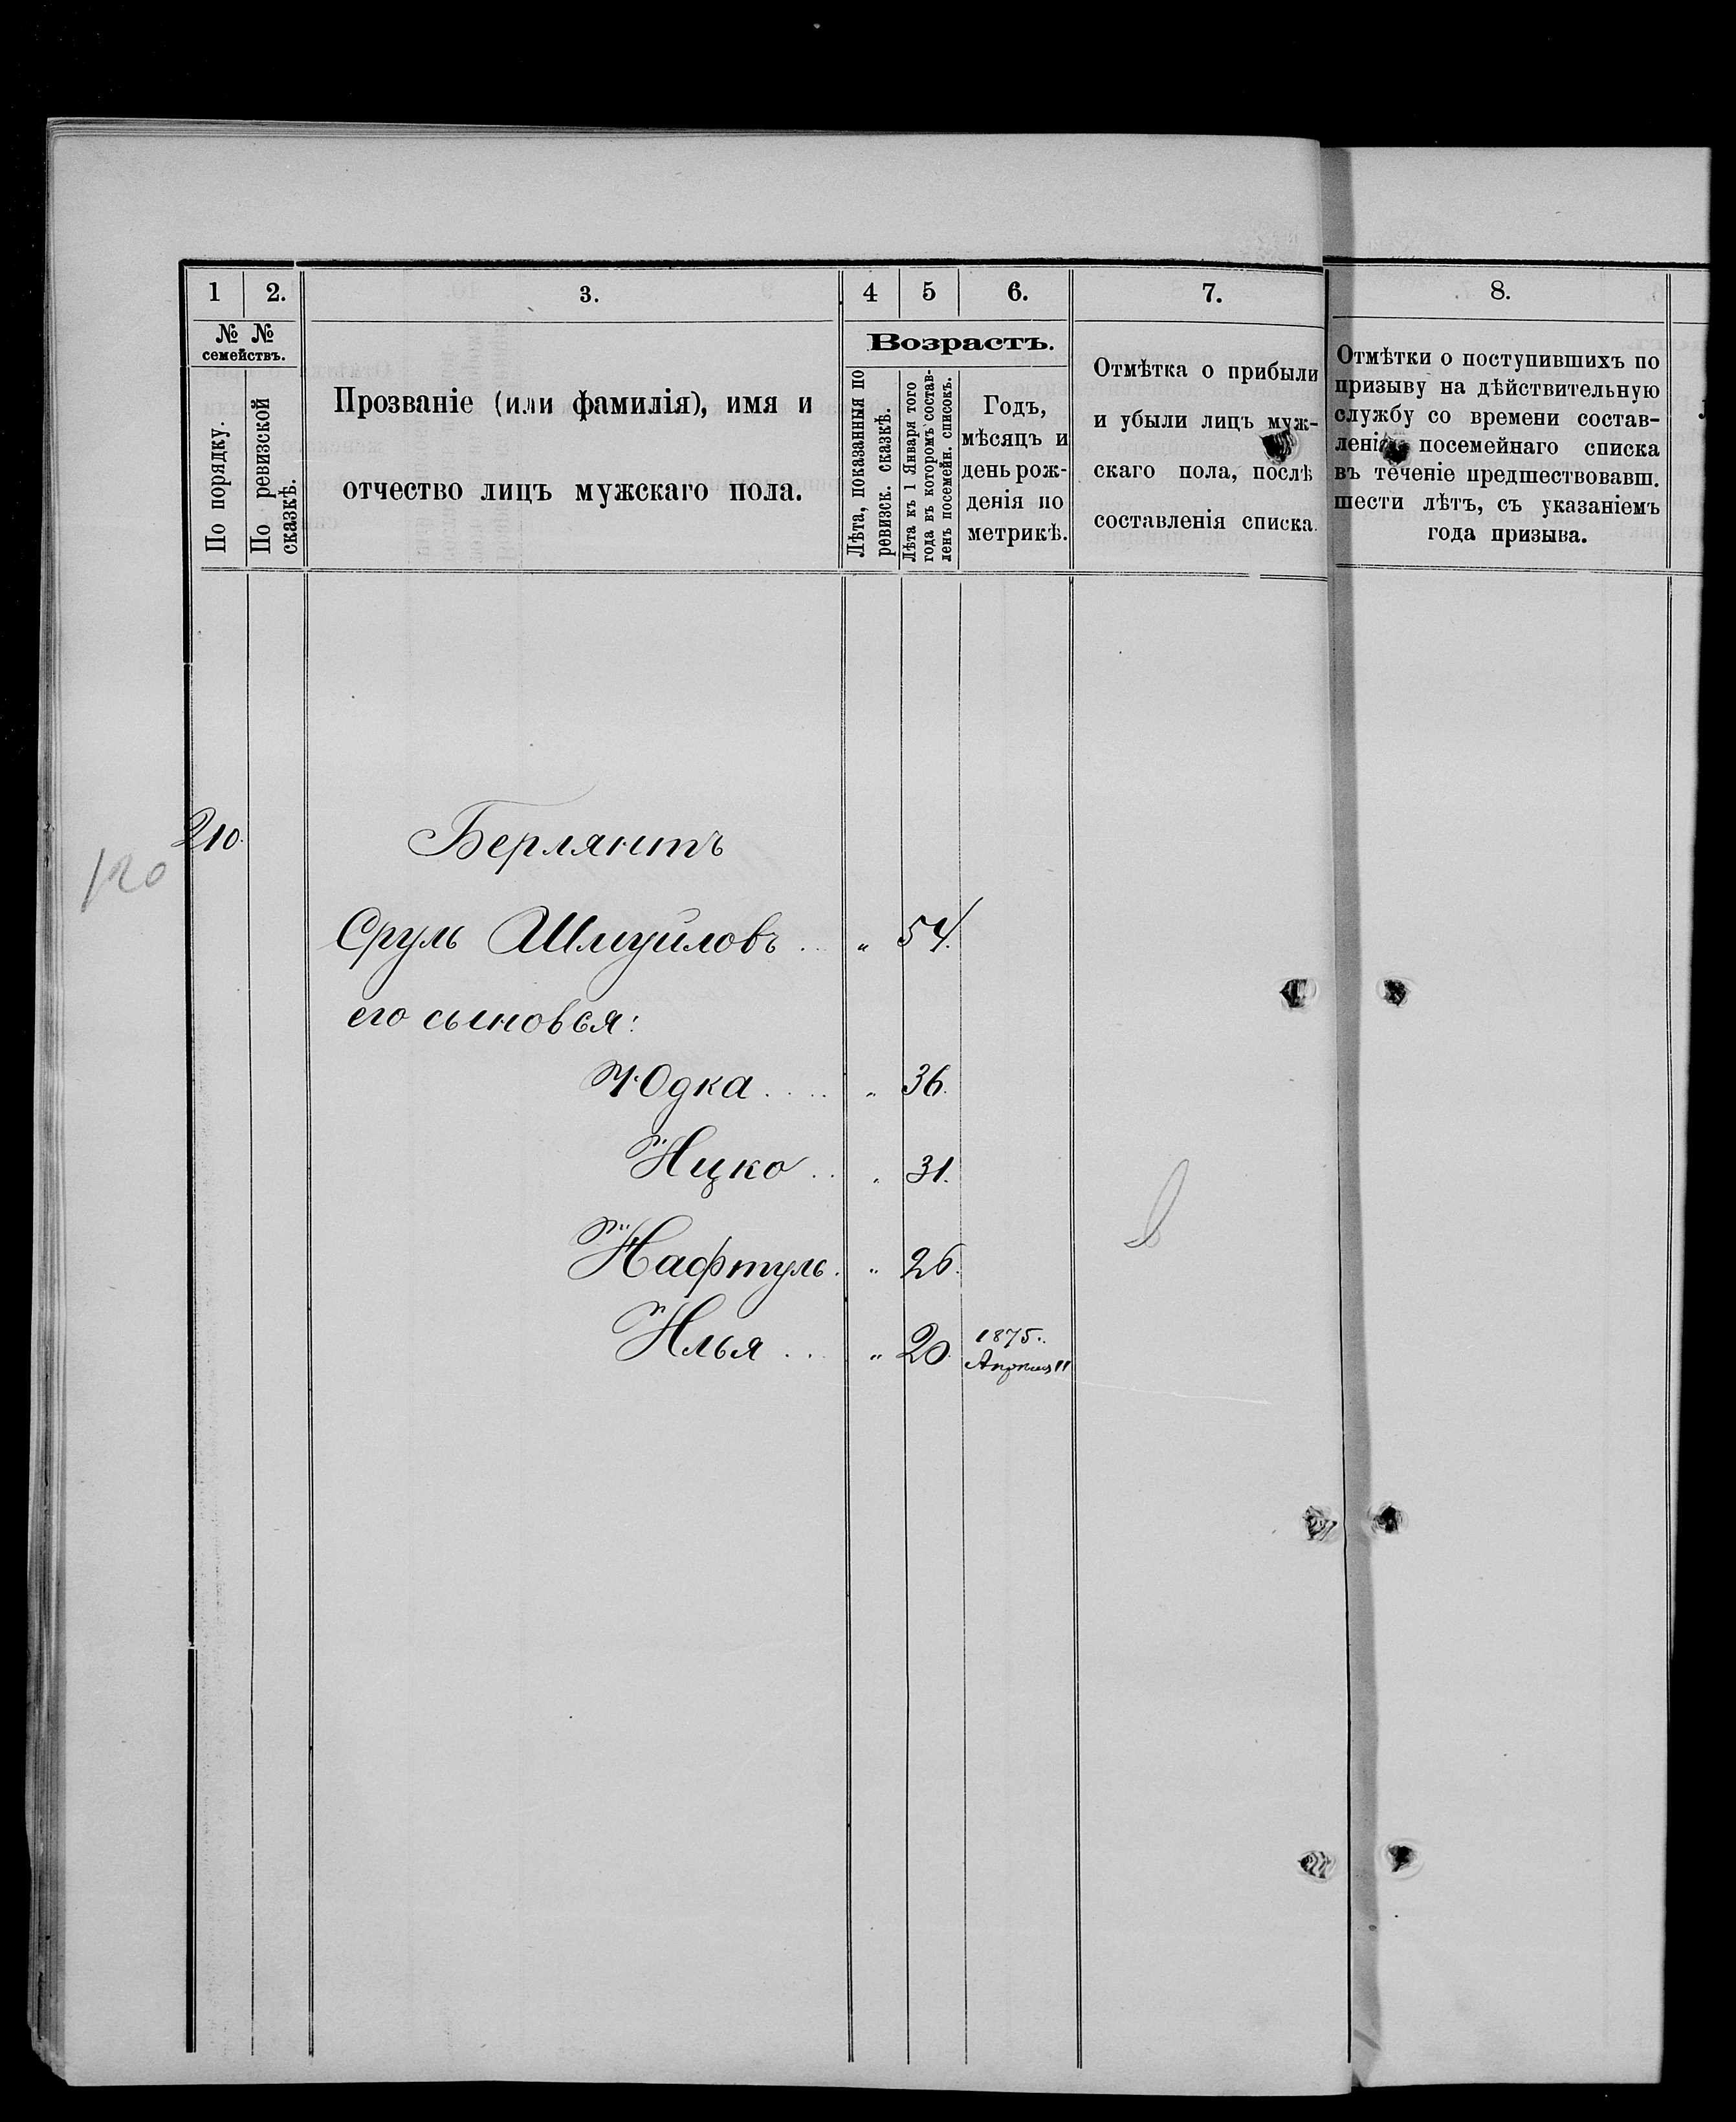 1
2.
3.
4
5
6.
7.
8.
№ №
семействъ.
По порядку.
По ревизской
сказкѣ.
Прозваніе (или фамилія), имя и
отчество лицъ мужскаго пола.
Возрастъ.
Лѣта, показанныя по
ревизск. сказкѣ.
Лѣта къ 1 Января того
года въ которомъ состав-
ленъ посемейн. списокъ.
Годъ,
мѣсяцъ и
день рож-
денія по
метрикѣ.
Отмѣтка о прибыли
и убыли лицъ муж-
скаго пола, послѣ
составленія списка.
Отмѣтки о поступившихъ по
призыву на дѣйствительную
службу со времени состав-
ленія посемейнаго списка
въ теченіе предшествовавш.
шести лѣтъ, съ указаніемъ
года призыва.
210.
120
Берлянтъ
Сруль Шмуйловъ .. " 54.
его сыновья:
Юдка .... " 36.
Ицко .. " 31.
Нафтуль. " 26.
Илья ... " 20. 1875.